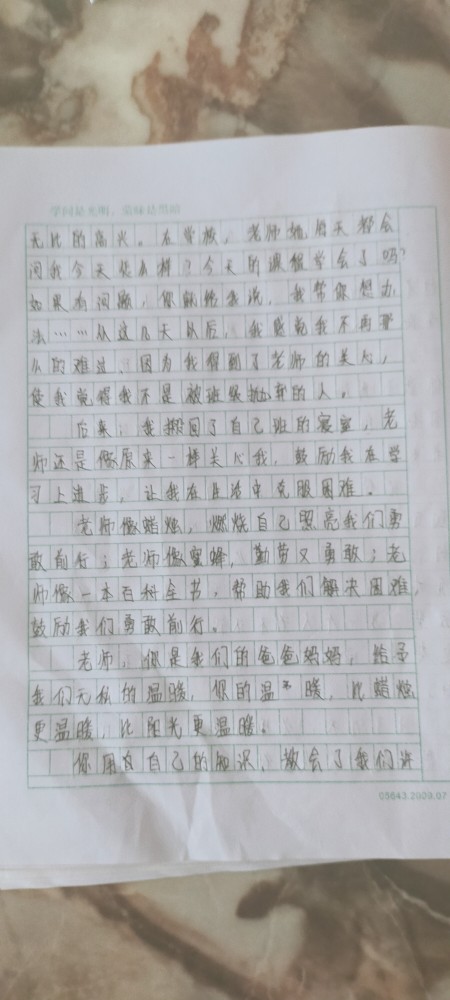 学问是光明，愚昧是黑暗
无比的高兴。在学校，老师她每天都会
问我今天怎么样？今天的课程学会了吗？
如果有问题，你就给我说，我帮你想办
法……从这几天以后，我感觉我不再那
么的难过、因为我得到了老师的关心，
使我觉得我不是被班级抛弃的人。
后来，我搬回了自己班的寝室，老
师还是像原来一样关心我，鼓励我在学
习上进步，让我在生活中克服困难。
老师像蜡烛，燃烧自己照亮我们勇
敢前行；老师像蜜蜂，勤劳又勇敢；老
师像一本百科全书，帮助我们解决困难，
鼓励我们勇敢前行。
老师，你是我们的爸爸妈妈，给予
我们无私的温暖，你的温暖，比蜡烛
更温暖，比阳光更温暖。
你用自自己的知识，教会了我们许
05643.2009.07